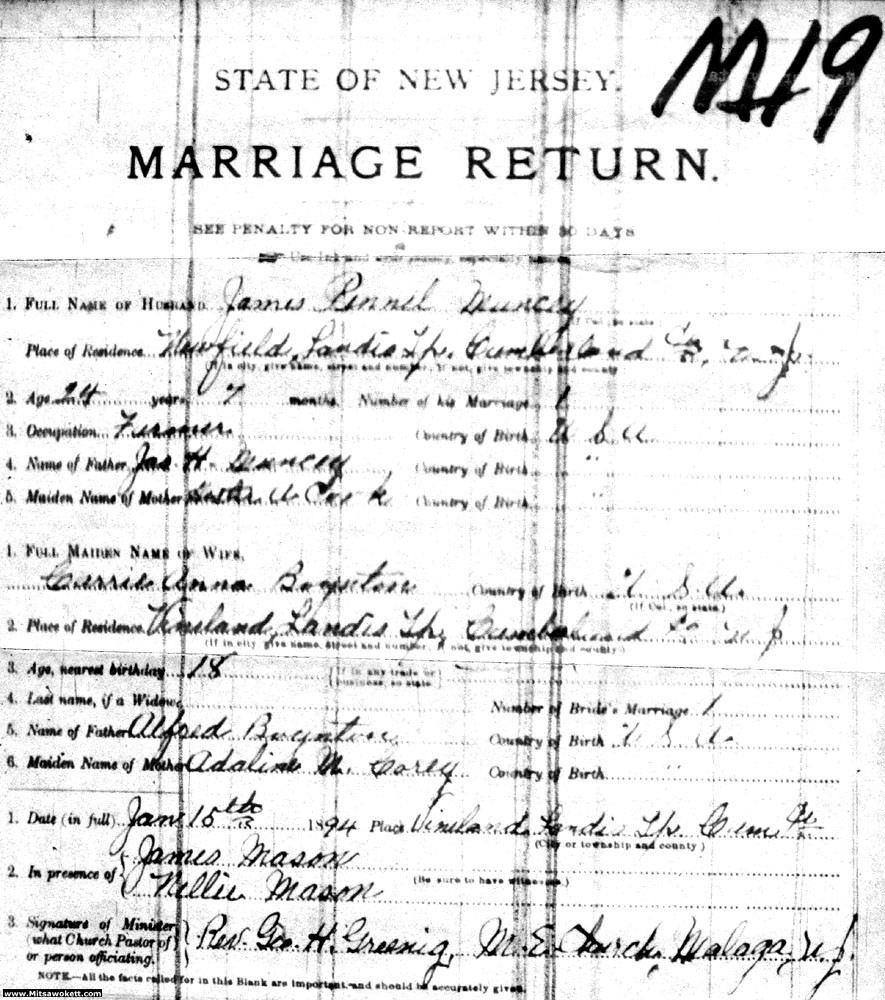 M 19
STATE OF NEW JERSEY.
MARRIAGE RETURN.
SEE PENALTY FOR NON-REPORT WITHIN 30 DAYS
Use Ink and
1. FULL NAME OF HUSBAND James Pennel Muncey
(If Col., so state)
Place of Residence Newfield, Landis Tp. Cumberland Co. N. J.
(If in city, give name, street and number, if not, give township and county)
2. Age 24 years 7 months. Number of his Marriage 1
3. Occupation Farmer Country of Birth U S A
4. Name of Father Jas H. Muncey Country of Birth "
5. Maiden Name of Mother A Cook Country of Birth "
1. FULL MAIDEN NAME OF WIFE,
Carrie Anna Boynton Country of Birth U. S. A.
(If Col., so state.)
2. Place of Residence Vineland, Landis Tp, Cumberland Co N J
(If in city give name, street and number, if not, give township and county)
3. Age, nearest birthday 18 (If in any trade or business, so state)
4. Last name, if a Widow, Number of Bride's Marriage 1
5. Name of Father Alfred Boynton Country of Birth U S A.
6. Maiden Name of Mother Adaline M. Corey Country of Birth "
1. Date (in full) Jan 15th 1894 Place Vineland, Landis Tp. Cum Co.
(City or township and county)
2. In presence of James Mason
Nellie Mason (Be sure to have witnesses.)
3 Signature of Minister (what Church Pastor of) or person officiating. Rev. Geo. H. Gresnig, M. E. Church, Malaga, N. J.
NOTE.—All the facts called for in this Blank are important, and should be accurately given.
www.Mitsawokett.com